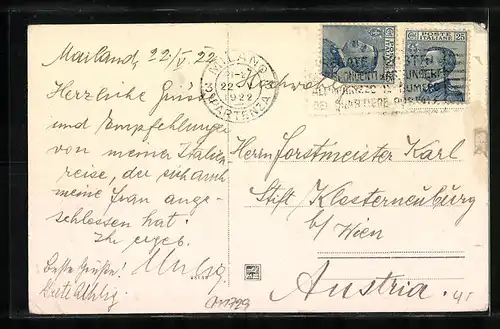 Mailand, 22/V. 22
Herzliche Grüße
und Empfehlungen
von meiner Italien
reise, der sich auch
meine Frau ange-
schlossen hat!
Ihr ergeb.
Uhlig
Beste Grüße!
Uhlig
MILANO
22
1922
PARTENZA
POSTE ITALIANE
25
Hochwohlg.
Herrn Forstmeister Karl
Stift Klosterneuburg
b/ Wien
Austria.